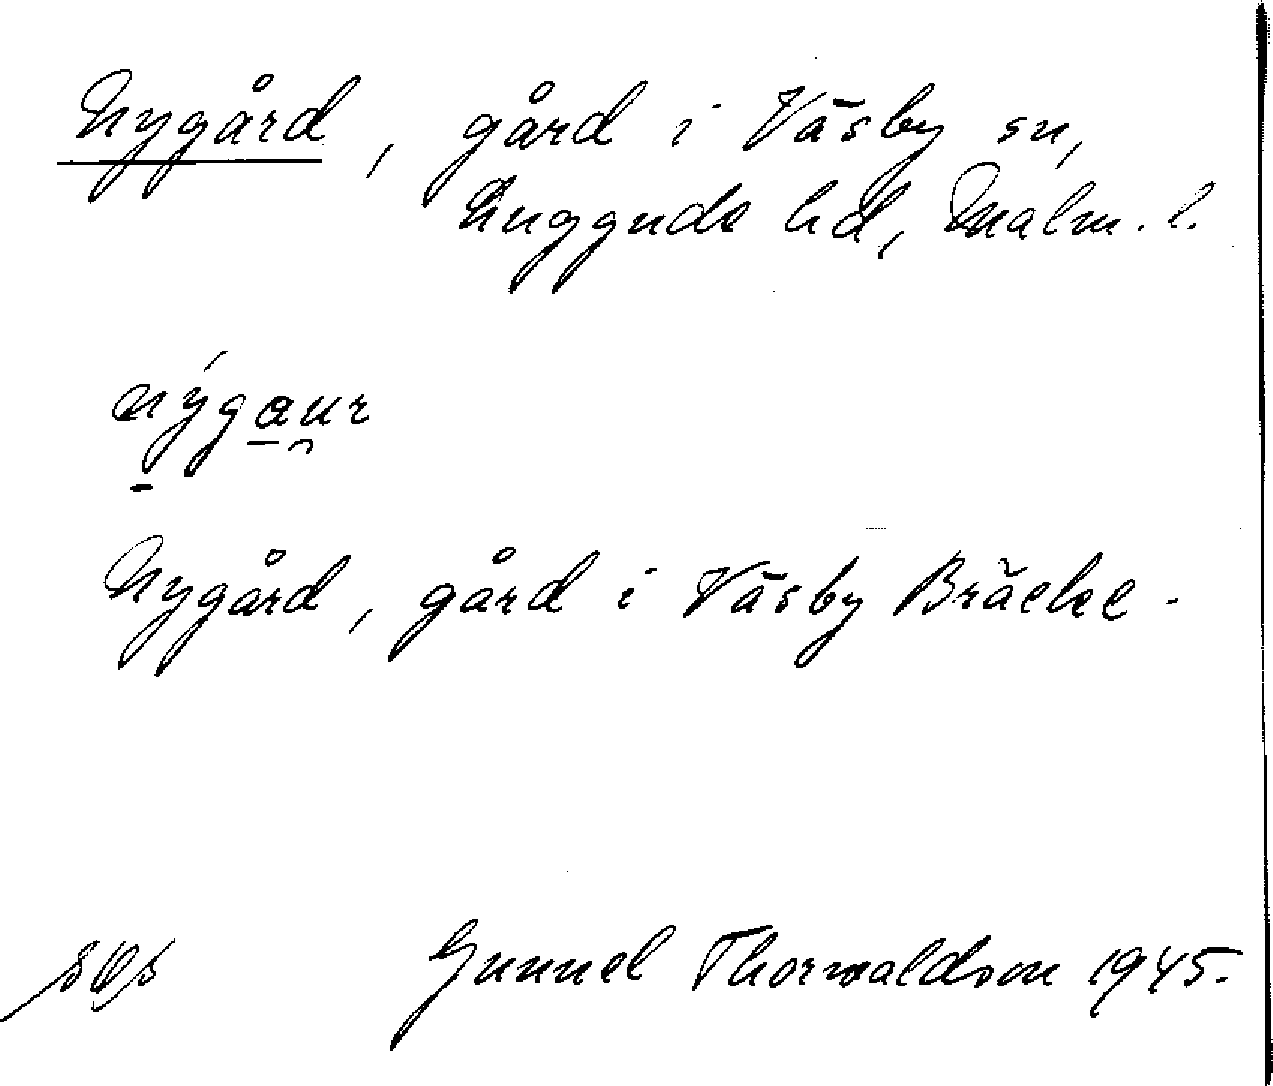 Nygård, gård i Väsby sn,
Luggude hd, Malm. l.
nýgau̯r
Nygård, gård i Väsby Bräcke.
Gunnel Thorwaldson 1945.